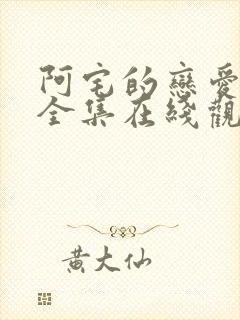 阿宅的戀愛
全集在綫觀
黃大仙